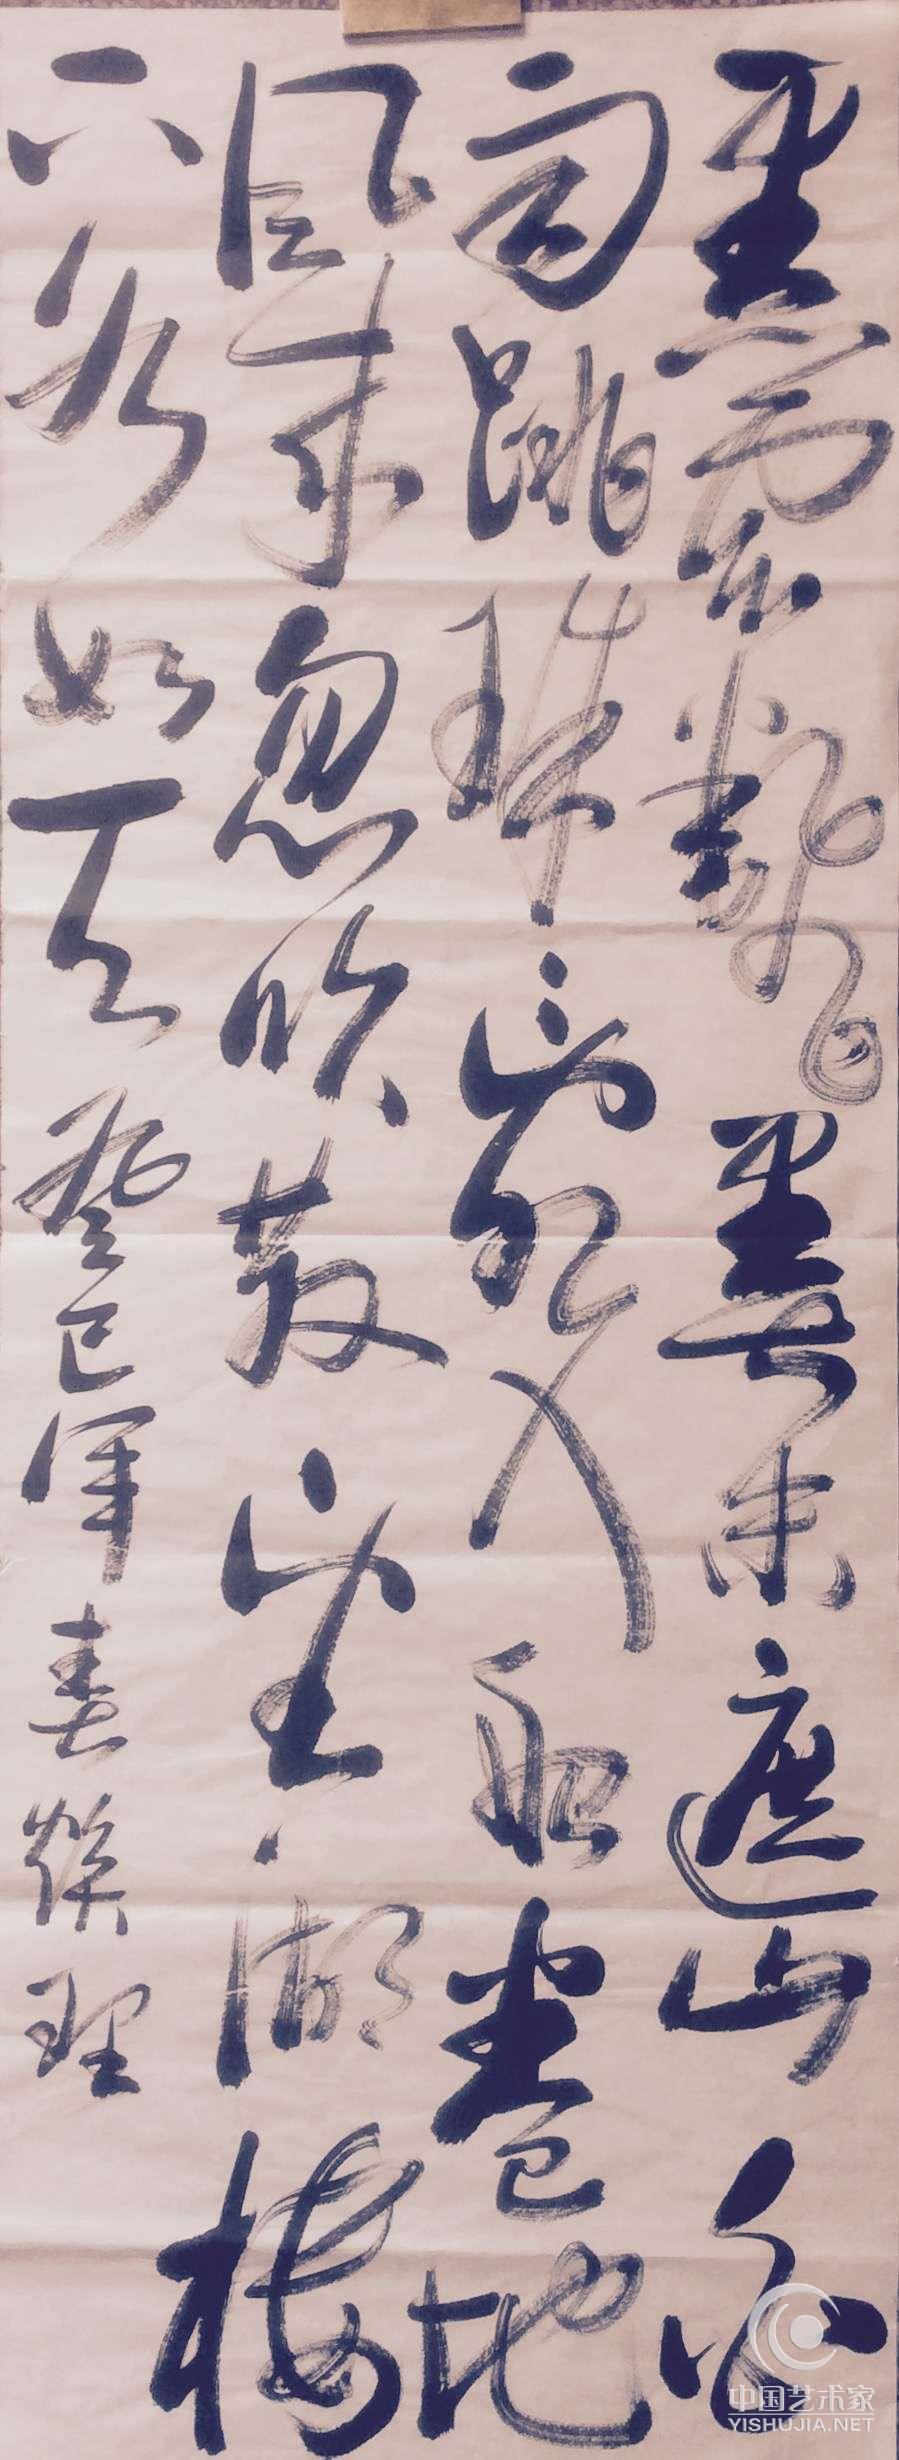 黑雲翻墨未遮山白
雨跳珠亂入船卷地
風來忽吹散望湖樓
下水如天 癸巳年春 理
中国艺术家
YISHUJIA.NET